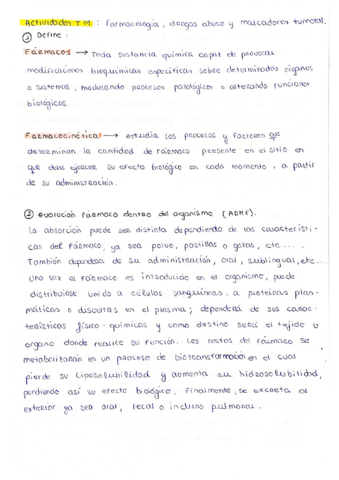 Actividades T.11: Farmacología, drogas abuso y marcadores tumoral.
① Define:
Fármacos → Toda sustancia química capaz de provocar
modificaciones bioquímicas específicas sobre determinados órganos
o sistemas, modulando procesos patológicos o alterando funciones
biológicas.
Farmacocinética: → estudia los procesos y factores que
determinan la cantidad de fármaco presente en el sitio en
que debe ejercer su efecto biológico en cada momento, a partir
de su administración.
② Evolución fármaco dentro del organismo (ADME).
La absorción puede ser distinta dependiendo de las característi-
cas del fármaco, ya sea polvo, pastillas o gotas, etc....
También dependerá de su administración, oral, sublingual, etc...
Una vez el fármaco es introducido en el organismo, puede
distribuirse unido a células sanguíneas, a proteínas plas-
máticas o disueltas en el plasma; dependerá de sus carac-
terísticas físico-químicas y como destino será el tejido u
organo donde realice su función. Los restos del fármaco se
metabolitarán en un proceso de biotransformación en el cual
pierde su liposolubilidad y aumenta su hidrosolubilidad,
perdiendo así su efecto biológico. Finalmente, se excreta al
exterior ya sea oral, fecal o incluso pulmonar.